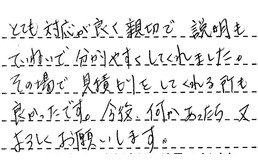 とても対応が良く親切で、説明も
ていねいで分かりやすくしてくれました。
その場で見積もりをしてくれる所も
良かったです。今後、何かあったら又
よろしくお願いします。